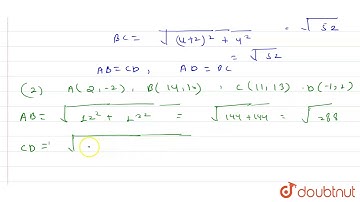 BC = √(4+2)² + 4² = √52
= √52
AB = CD , AD = BC
(2) A(2,-2), B(14,10), C(11,13) D(-1,1)
AB = √12² + 12² = √144+144 = √288
CD = √
doubtnut